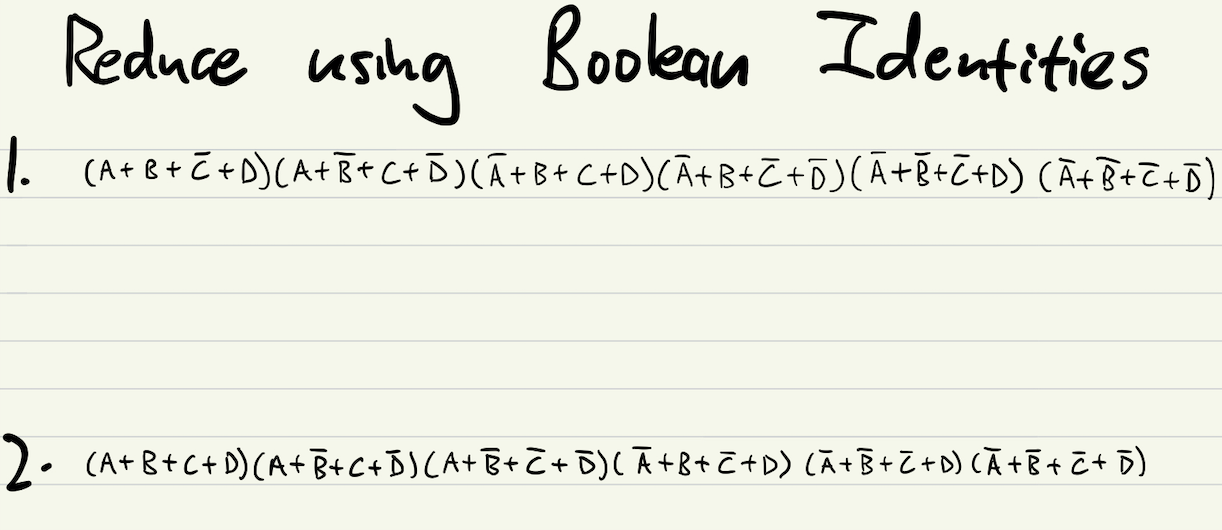 Reduce using Boolean Identities
1. (A+B+C̅+D)(A+B̅+C+D̅)(A̅+B+C+D)(A̅+B+C̅+D̅)(A̅+B̅+C̅+D) (A̅+B̅+C̅+D̅)
2. (A+B+C+D)(A+B̅+C+D̅)(A+B̅+C̅+D̅)(A̅+B+C̅+D) (A̅+B̅+C̅+D)(A̅+B̅+C̅+D̅)